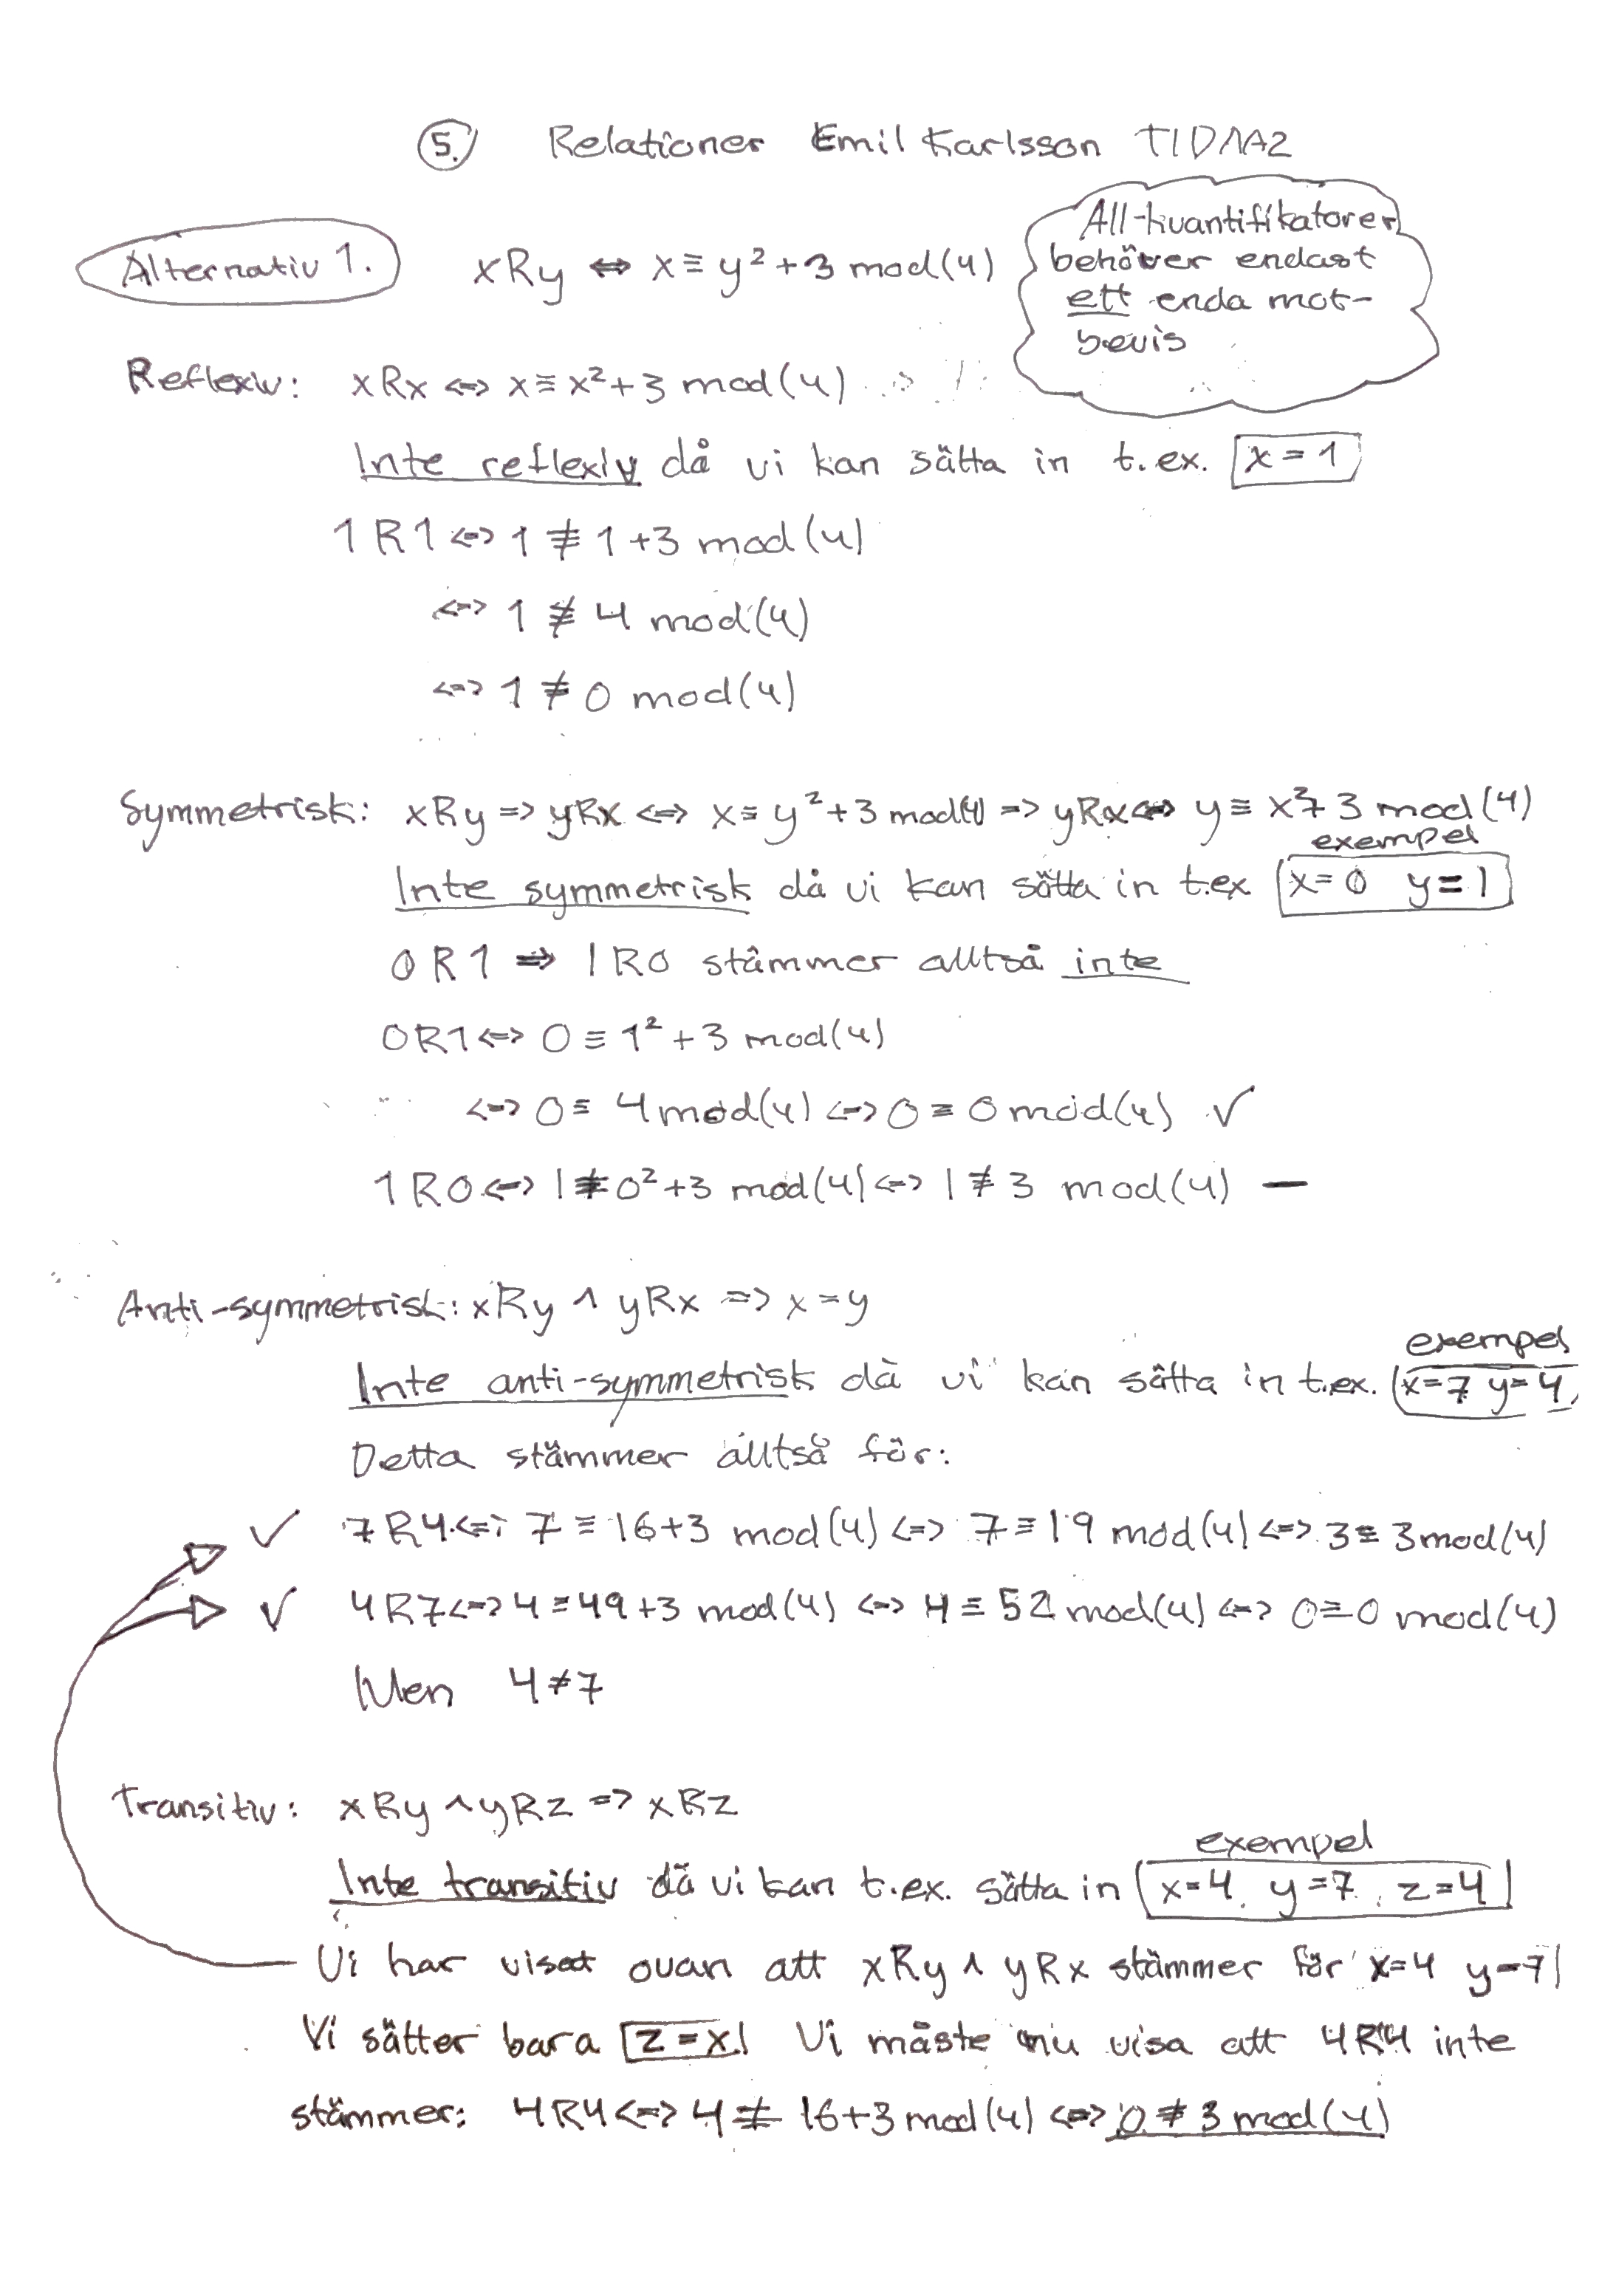 5. Relationer Emil Karlsson TIDAA2
Alternativ 1. xRy ⇔ x ≡ y² + 3 mod(4)
All-kvantifikatorer
behöver endast
ett enda mot-
bevis
Reflexiv: xRx <=> x ≡ x² + 3 mod(4)
Inte reflexiv då vi kan sätta in t.ex. x = 1
1R1 <=> 1 ≢ 1+3 mod(4)
<=> 1 ≢ 4 mod(4)
<=> 1 ≢ 0 mod(4)
Symmetrisk: xRy => yRx <=> x ≡ y² + 3 mod(4) => yRx <=> y ≡ x² + 3 mod(4)
exempel
Inte symmetrisk då vi kan sätta in t.ex x = 0 y = 1
0R1 => 1R0 stämmer alltså inte
0R1 <=> 0 ≡ 1² + 3 mod(4)
<=> 0 ≡ 4 mod(4) <=> 0 ≡ 0 mod(4) ✓
1R0 <=> 1 ≢ 0² + 3 mod(4) <=> 1 ≢ 3 mod(4) —
Anti-symmetrisk: xRy ∧ yRx => x = y
exempel
Inte anti-symmetrisk då vi kan sätta in t.ex. x=7 y=4
Detta stämmer alltså för:
✓ 7R4 <=> 7 ≡ 16+3 mod(4) <=> 7 ≡ 19 mod(4) <=> 3 ≡ 3 mod(4)
✓ 4R7 <=> 4 ≡ 49+3 mod(4) <=> 4 ≡ 52 mod(4) <=> 0 ≡ 0 mod(4)
Men 4 ≠ 7
Transitiv: xRy ∧ yRz => xRz
exempel
Inte transitiv då vi kan t.ex. sätta in x=4, y=7, z=4
Vi har visat ovan att xRy ∧ yRx stämmer för x=4 y=7
Vi sätter bara z = x! Vi måste nu visa att 4R4 inte
stämmer: 4R4 <=> 4 ≢ 16+3 mod(4) <=> 0 ≢ 3 mod(4)